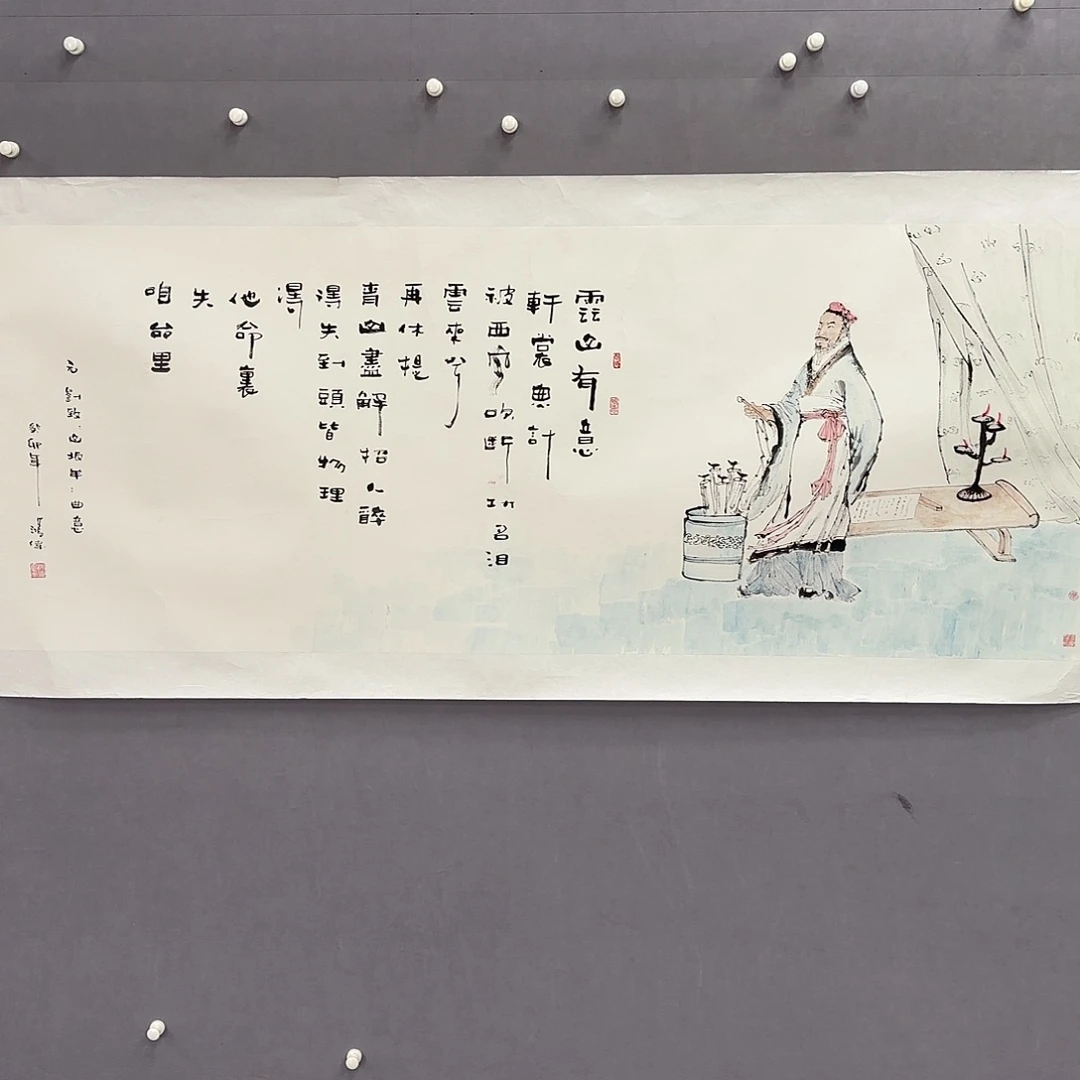 雲山有意
軒裳無計
被西風吹断功名泪
雲來兮
再休提
青山盡解招人醉
得失到頭皆物理
得
他命裏
失
咱命里
元 劉致 山坡羊：曲意
年